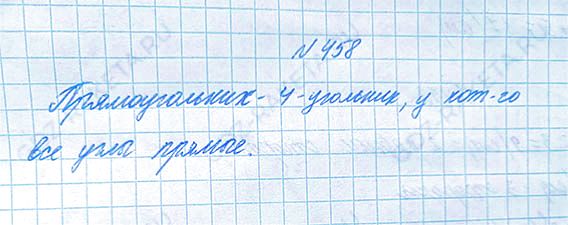 N 458
Прямоугольник - 4-угольник, у кот-го
все углы прямые.